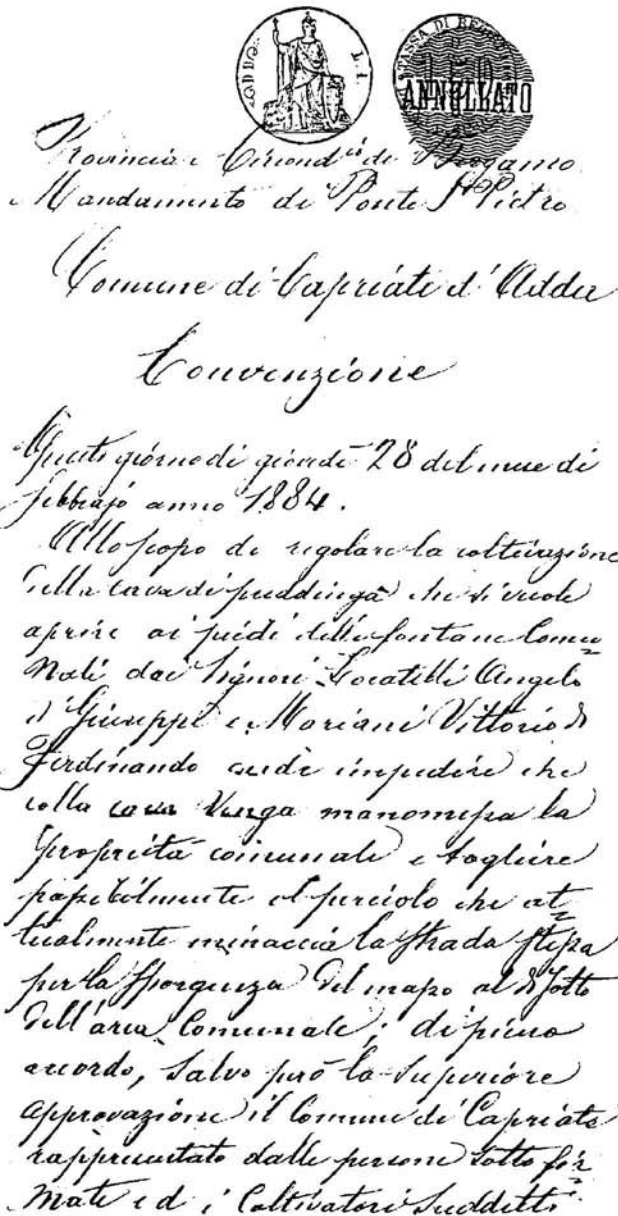 TASSA DI BOLLO
ANNULLATO
Provincia e Circond.io di Bergamo
Mandamento di Ponte S. Pietro
Comune di Capriate d'Adda
Convenzione
Questo giorno di giovedì 28 del mese di
febbrajo anno 1884.
Allo scopo di regolare la coltivazione
della cava di puddinga che si vuole
aprire ai piedi delle fontane Comu=
nali dai Signori Locatelli Angelo
di Giuseppe e Mariani Vittorio di
Ferdinando onde impedire che
colla cava venga manomessa la
proprietà comunale e togliere
possibilmente il pericolo che at=
tualmente minaccia la strada stessa
per la sporgenza del masso al di sotto
dell'area Comunale; di pieno
accordo, salvo però la superiore
approvazione il Comune di Capriate
rappresentato dalle persone sotto fir=
mate ed i Coltivatori suddetti